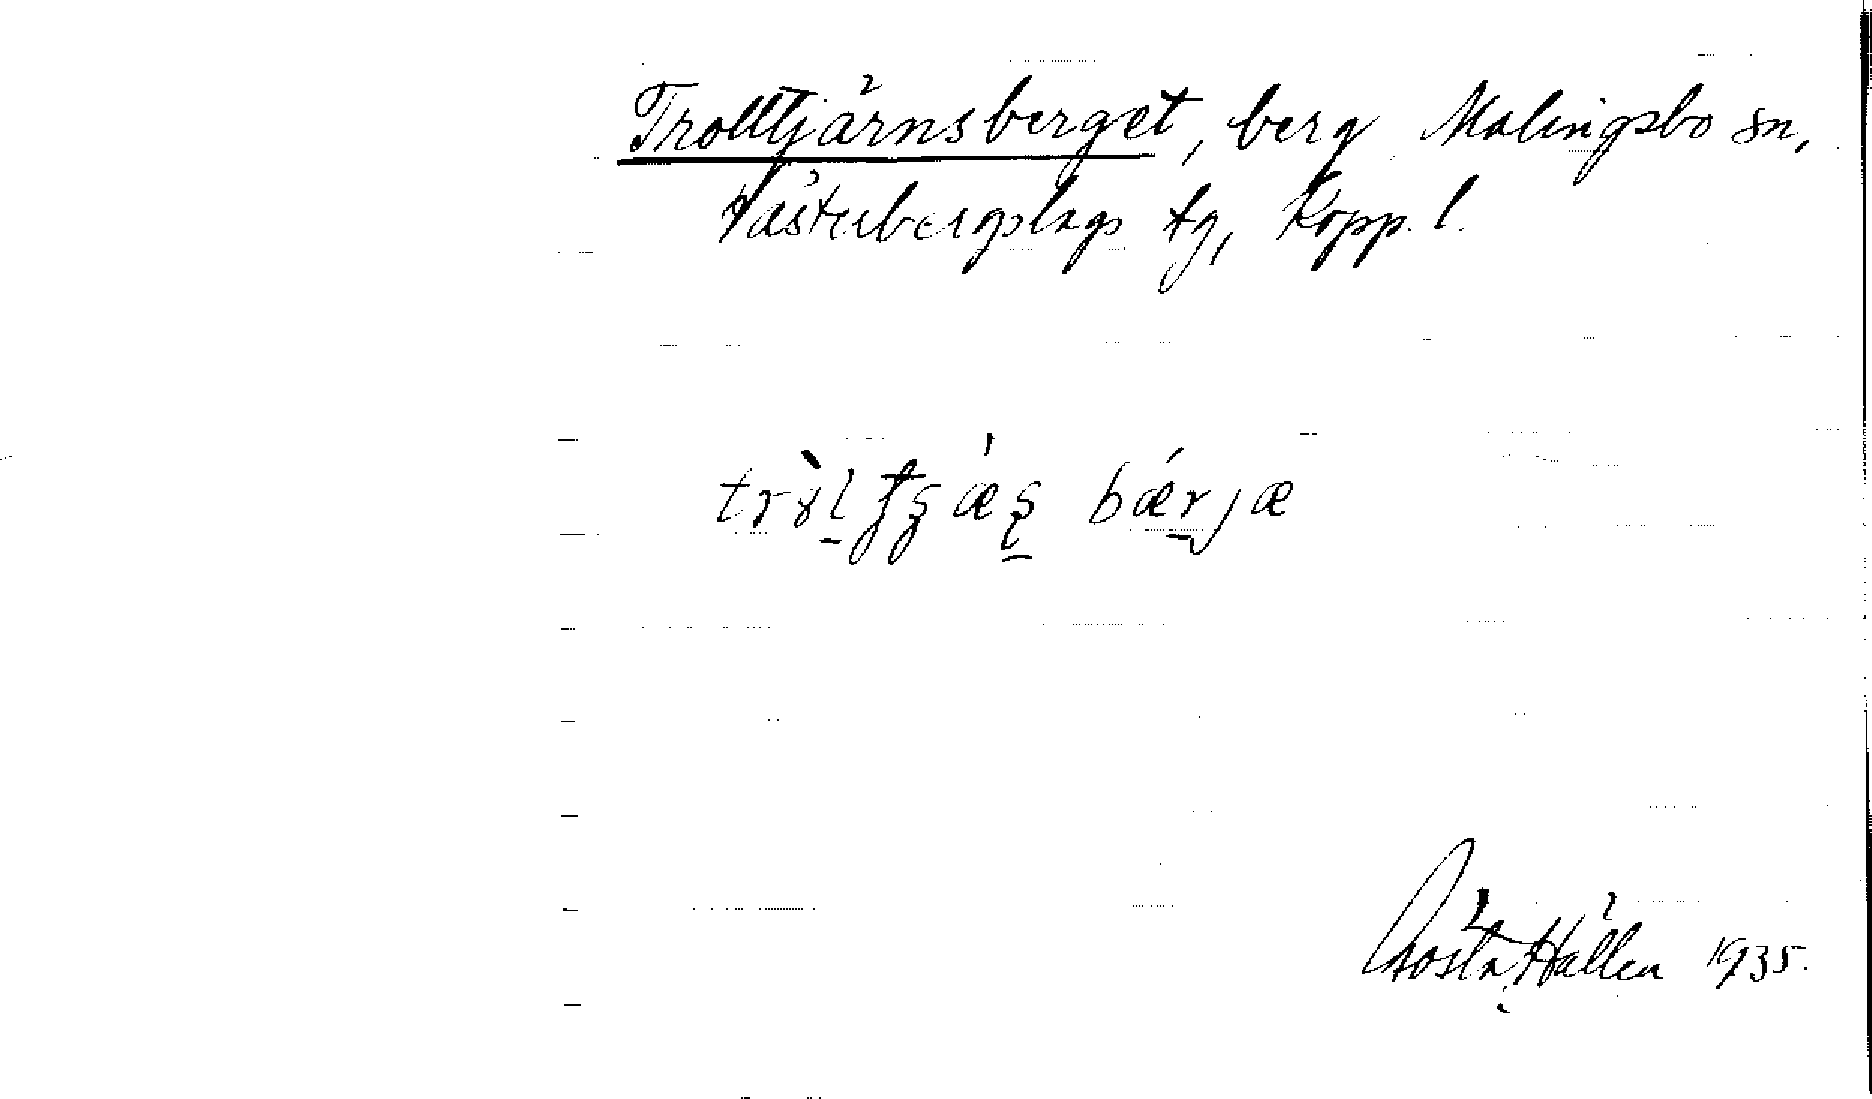 Trolltjärnsberget, berg Malingsbo sn,
Västerbergslags tg, Kopp. l.
bǽrjæ
Gösta Hällen 1935.